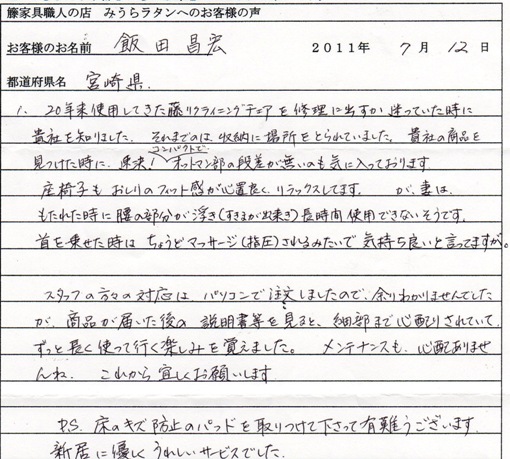 籐家具職人の店　みうらラタンへのお客様の声
お客様のお名前　飯田昌宏　2011年　7月　12日
都道府県名　宮崎県.
1. 20年来使用してきた藤リクライニングチェアを修理に出すか迷っていた時に
貴社を知りました. それまでのは、収納に場所をとられていました. 貴社の商品を
コンパクトで
見つけた時に、速決! オットマン部の段差が無いのも気に入っております.
座椅子も おしりのフィット感が心置良く、リラックスしてます. が、妻は.
もたれた時に腰の部分が浮き(すきまが出来き)長時間使用できないそうです.
首を乗せた時は ちょうどマッサージ(指圧)されるみたいで気持ち良いと言ってますが。
スタッフの方々の対応は、パソコンで注文しましたので、余りわかりませんでした
が、商品が届いた後の説明書等を見ると、細部まで心配りされていて、
ずっと長く使って行く楽しみを覚えました。 メンテナンスも、心配ありませ
んね. これから宜しくお願いします
P.S. 床のキズ防止のパッドを取りつけて下さって有難うございます.
新居に優しくうれしいサービスでした.